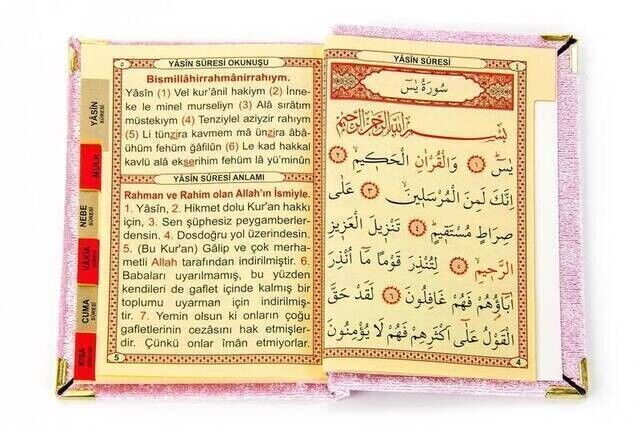 YÂSİN SÛRESİ
٤
سُورَةُ يٰسٓ
بِسْمِ اللّٰهِ الرَّحْمٰنِ الرَّحِيمِ
يٰسٓ ١ وَالْقُرْاٰنِ الْحَكِيمِ ٢
اِنَّكَ لَمِنَ الْمُرْسَلِينَ ٣ عَلٰى
صِرَاطٍ مُسْتَقِيمٍ ٤ تَنْزِيلَ الْعَزِيزِ
الرَّحِيمِ ٥ لِتُنْذِرَ قَوْمًا مَٓا اُنْذِرَ
اٰبَٓاؤُهُمْ فَهُمْ غَافِلُونَ ٦ لَقَدْ حَقَّ
الْقَوْلُ عَلٰٓى اَكْثَرِهِمْ فَهُمْ لَا يُؤْمِنُونَ
4
YÂSİN SÛRESİ OKUNUŞU
٥
Bismillâhirrahmânirrahıym.
Yâsîn (1) Vel kur'ânil hakiym (2) İnne-
ke le minel murseliyn (3) Alâ sırâtım
müstekıym (4) Tenziylel aziyzir rahıym
(5) Li tünzira kavmem mâ ünzira âbâ-
ühüm fehüm gâfilûn (6) Le kad hakkal
kavlü alâ ekserihim fehüm lâ yü'minûn
YÂSİN SÛRESİ ANLAMI
Rahman ve Rahim olan Allah'ın İsmiyle.
1. Yâsîn, 2. Hikmet dolu Kur'an hakkı
için, 3. Sen şüphesiz peygamberler-
densin. 4. Dosdoğru yol üzerindesin.
5. (Bu Kur'an) Gâlip ve çok merha-
metli Allah tarafından indirilmiştir. 6.
Babaları uyarılmamış, bu yüzden
kendileri de gaflet içinde kalmış bir
toplumu uyarman için indirilmiş-
tir. 7. Yemin olsun ki onların çoğu
gafletlerinin cezasını hak etmişler-
dir. Çünkü onlar îmân etmiyorlar.
5
YÂSİN
SÛRESİ
MÜLK
NEBE
SÛRESİ
VÂKIA
SÛRESİ
CUMA
SÛRESİ
KISA